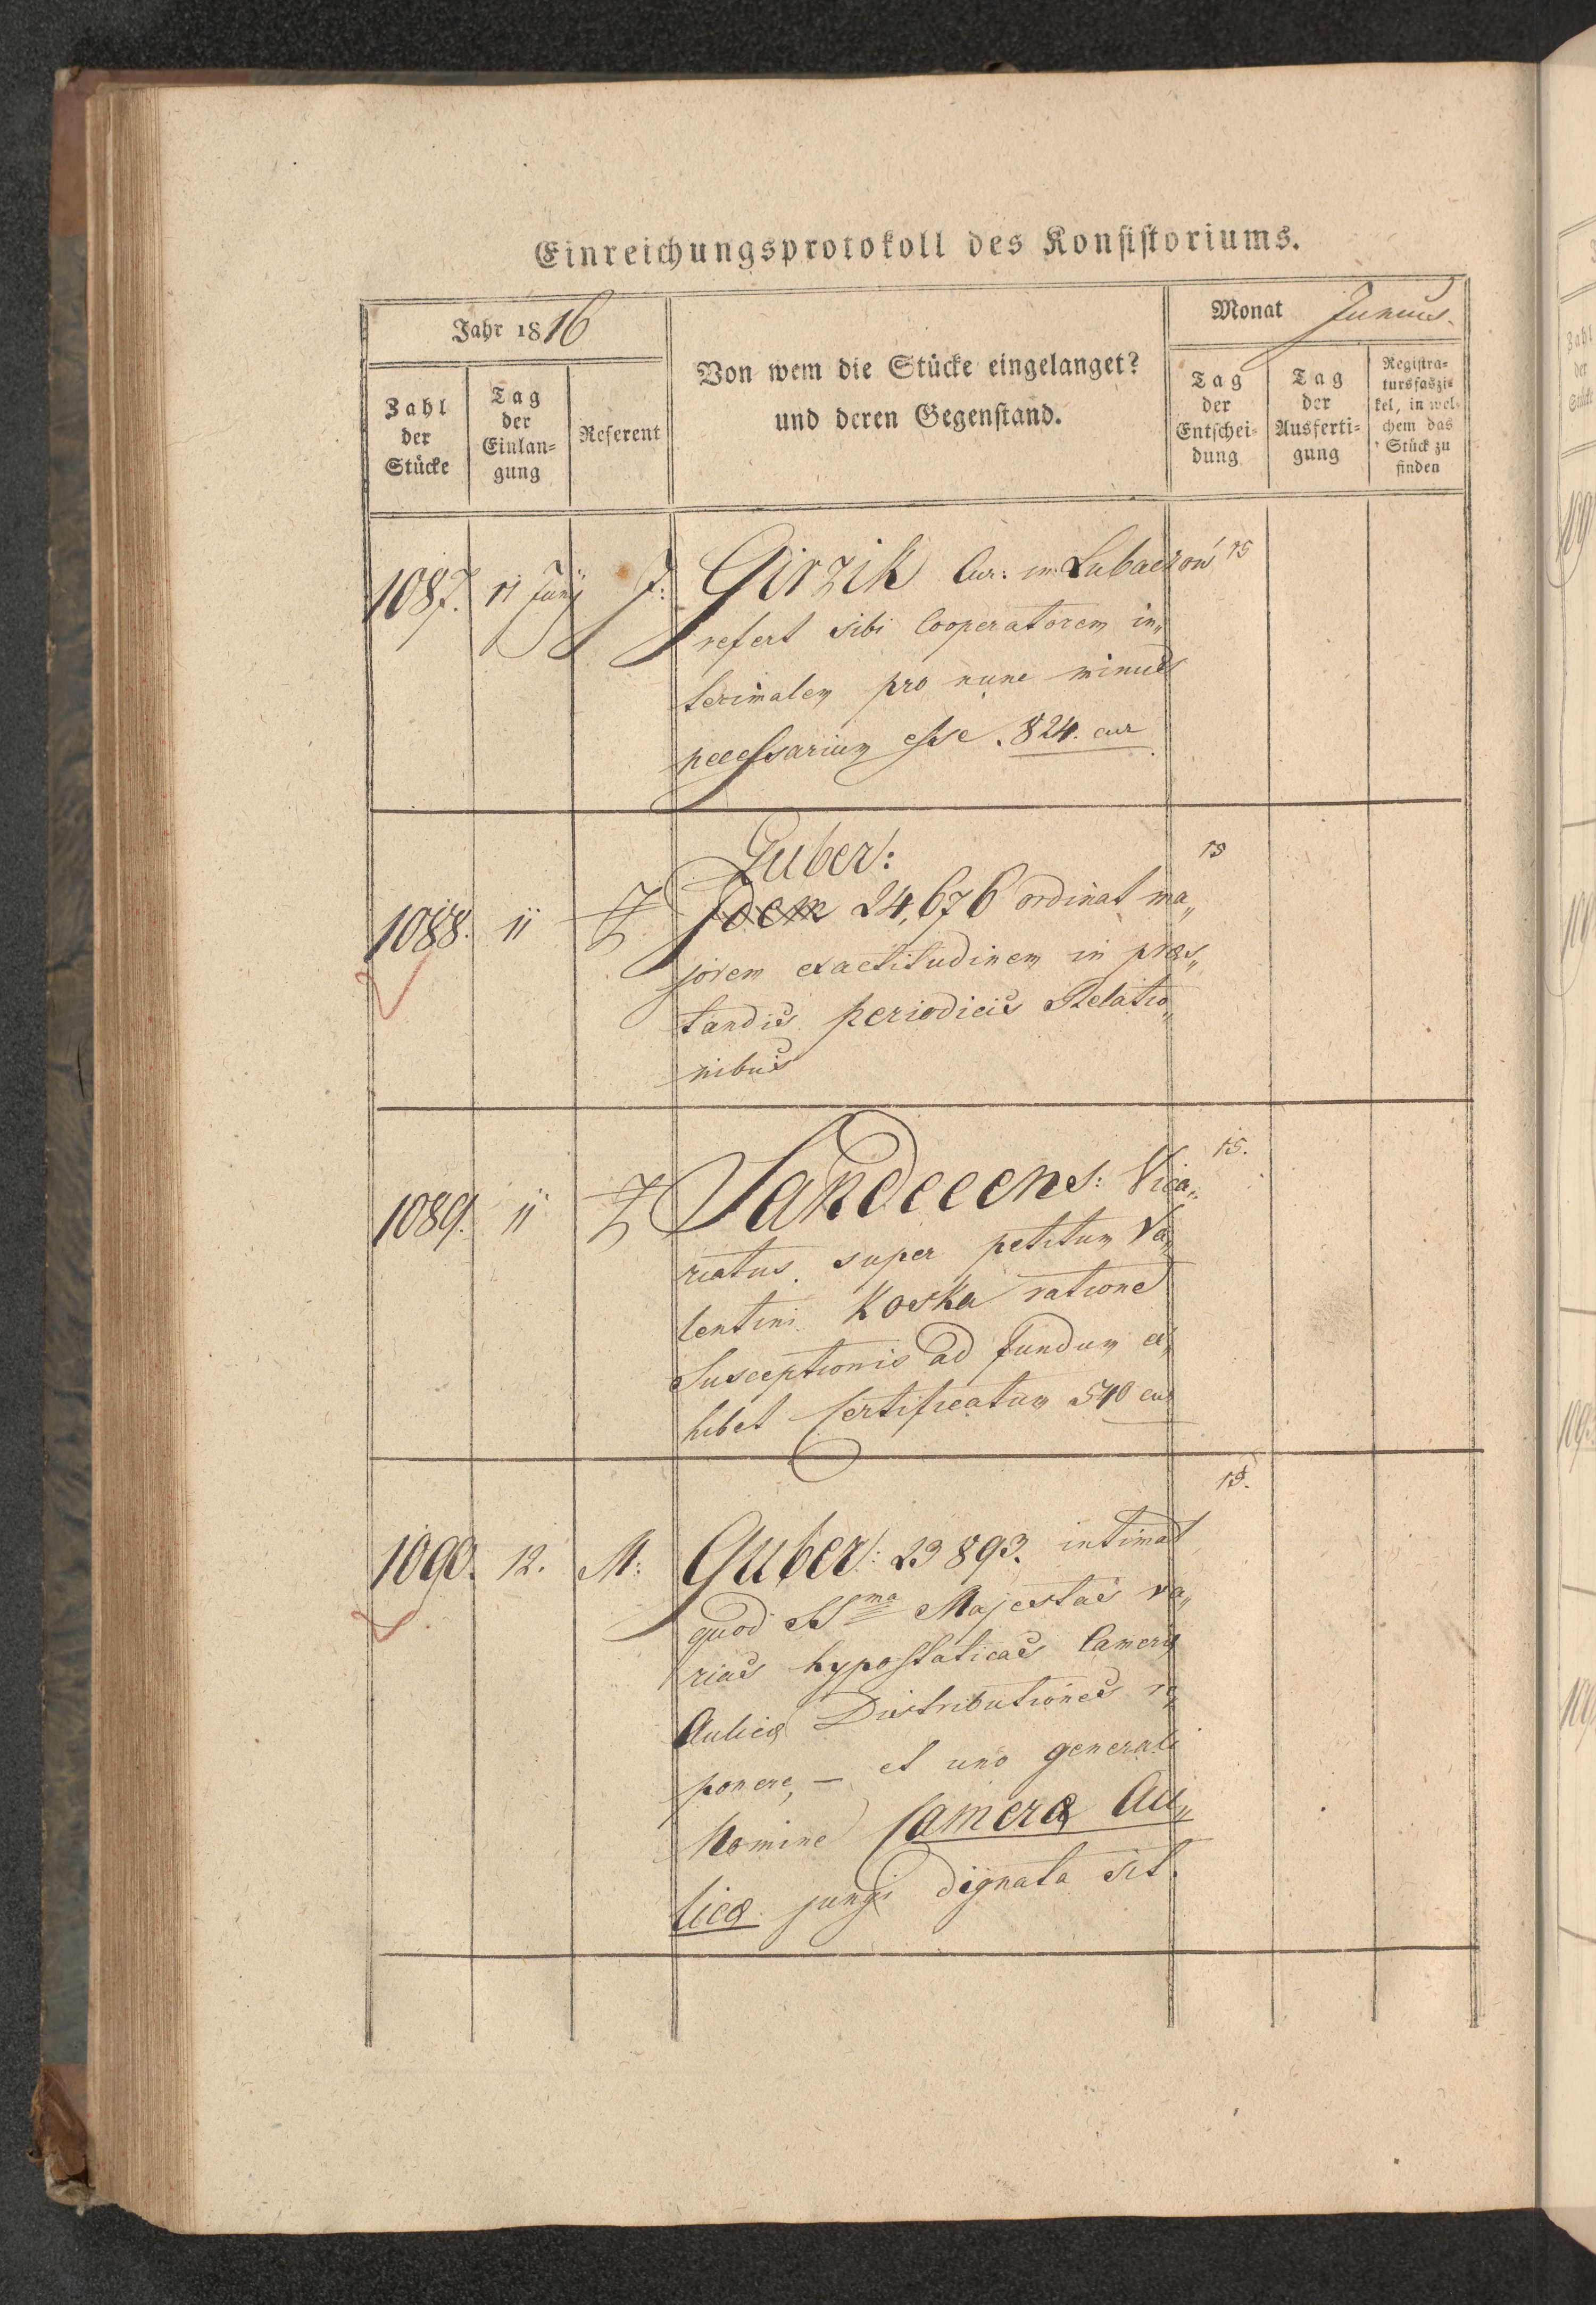 Einreichungsprotokoll des Konsistoriums.
Jahr 1816
Monat Junius.
Zahl der Stücke
Tag der Einlan=gung
Referent
Von wem die Stücke eingelanget?
und deren Gegenstand.
Tag der Entschei=dung
Tag der Ausferti=gung
Registra=tursfaszi=kel, in wel=chem das Stück zu finden
1087. 11 Junÿ J: Girzik Cur: in Lubaczow 15
refert sibi Cooperatorem in„
terimalem pro nunc minus
necessarium esse. 824. cur
Guber: 15
1088. 11 Z Idem 24,676 ordinat ma„
jorem exactitudinem in præs„
tandis periodicis Relatio„
nibus
1089. 11 Z Sandecens: Vica„ 15.
riatus super petitum Va„
lentini Koska ratione
Susceptionis ad fundum ex„
hibet Certificatum 540 cur
15.
1090. 12. M: Guber: 23893. intimat
quod SSma Majestas va„
rias hypostaticas Cameræ
Aulicæ Distributiones re„
ponere, — et uno generali
Nomine Cameræ Au„
licæ jungi dignata sit.